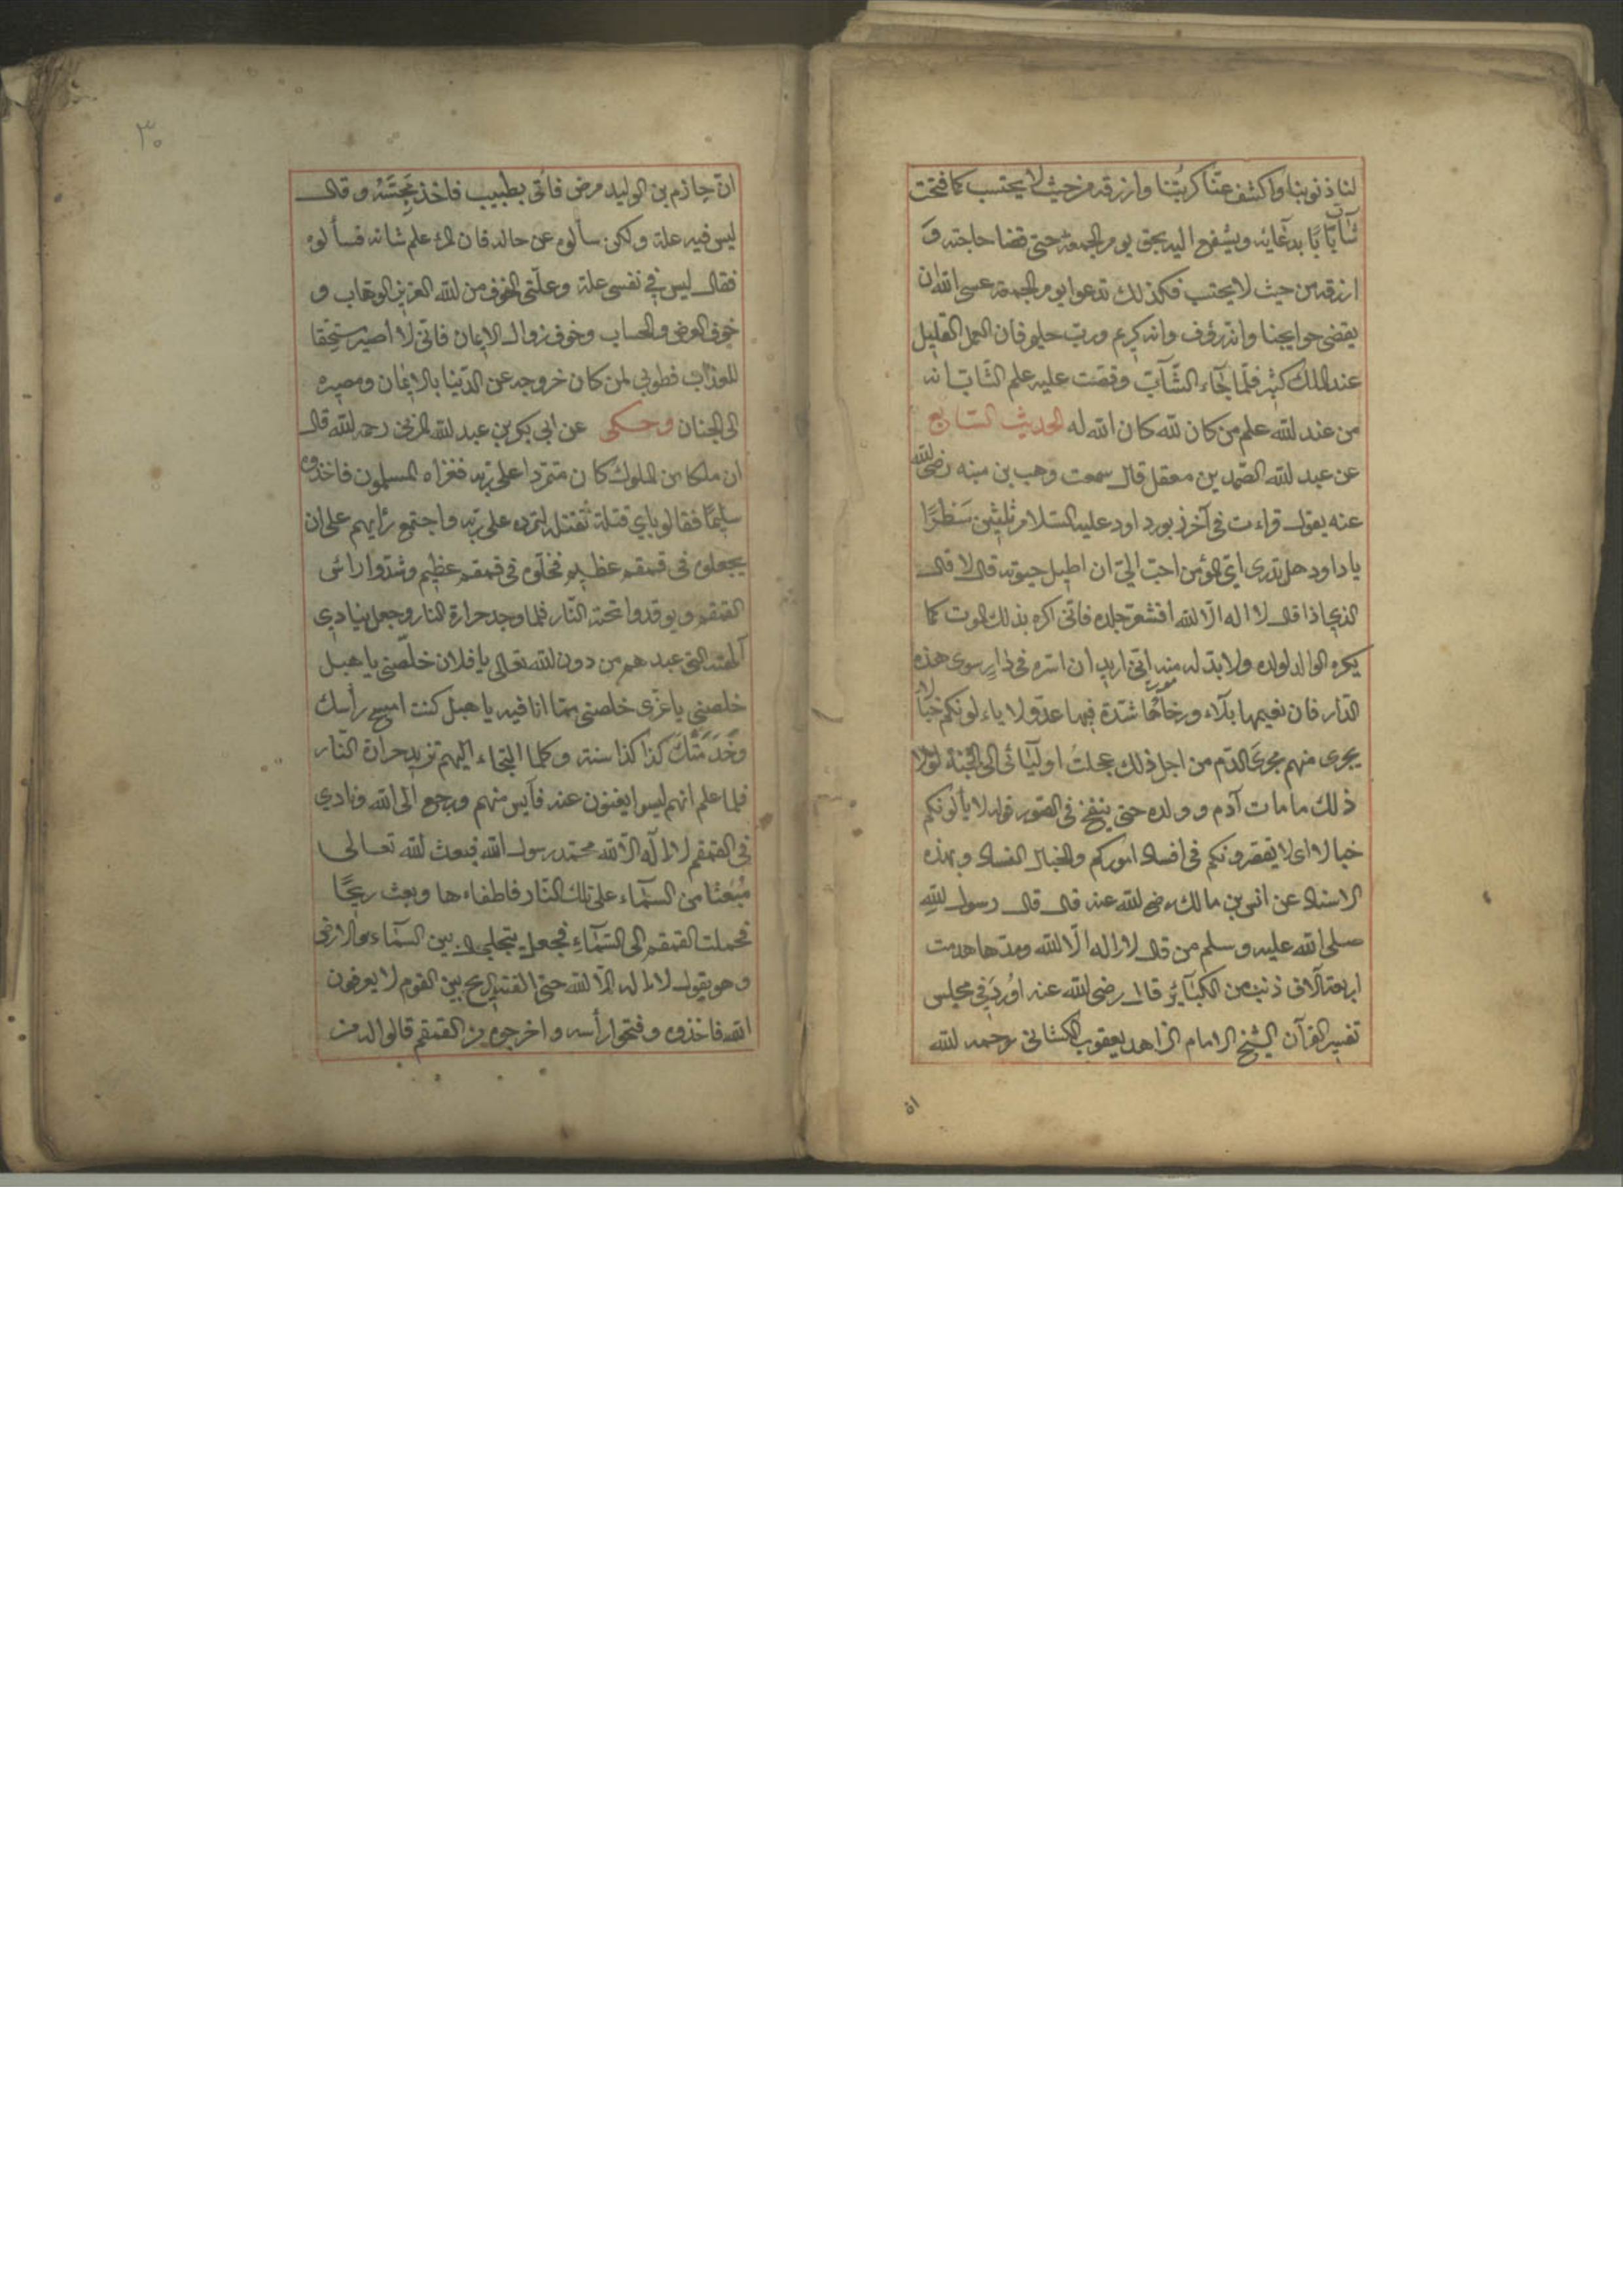 لنا ذنوبنا واكشف عنّا كربتنا وارزقه من حيث لا يحتسب كما فتحت
شابّ بابًا بدعائه ويشفع اليه بحق يوم الجمعة حتى قضا حاجته و
ارزقه من حيث لا يحتسب فكذلك تدعوا يوم الجمعة عسى الله ان
يقضى حوايجنا وانه رؤف وانه كريم وربّ حليم فان العمل القليل
عند الملك كثير فلمّا جاء الشّابّ وقصّت عليه علم الشّابّ انه
من عند الله علم من كان لله كان الله له الحديث السّابع
عن عبد الله الصّمد بن معقل قال سمعت وهب بن منبه رضى الله
عنه يقول قراءت فى آخر زبور داود عليه السّلام ثلثين سَطْرًا
يا داود هل تدرى اىّ المؤمن احبّ الىّ ان اطيل حيوته قال لا قال
الذي اذا قال لا اله الّا الله اقشعرّ جلده فانّى اكره بذلك الموت كما
يكره الوالد لولده ولا بدّ له منه انّى اريد ان اسرّه فى دار سوى هذه
الدّار فان نعيمها بلآء ورخآءها شدّة فيها عدوّ لا ياءلونكم خبالا
يجرى منهم مجرىَ الدّم من اجل ذلك عجلت اوليآئى الى الجنّة لولا
ذلك ما مات آدم وولده حتى ينفخ فى الصّور قوله لا يألونكم
خبالا اى لا يقصرونكم فى افساد اموركم والخبال الفساد وبهذه
الاسناد عن انس بن مالك رضى الله عنه قال قال رسول اللهِ
صلى الله عليه وسلم من قال لا اله الّا الله ومدّها هدمت
اربعة آلاف ذنب من الكبآئر قال رضى الله عنه اُورد فى مجلس
تفسير القرآن الشيخ الامام الزاهد يعقوب الكشانى رحمه الله
ان
٣٠
انّ حازم بن الوليد مرض فاتى بطبيب فاخذ مجسّته وقال
ليس فيه علة ولكن سألوه عن حاله فان له علم شانه فسألوه
فقال ليس فى نفسى علة وعلّتى الخوف من الله العزيز الوهّاب و
خوف العرض والحساب وخوف زوال الايمان فانّى لا اصير مستحقا
للعذاب فطوبى لمن كان خروجه عن الدّنيا بالايمان ومصيره
الى الجنان وحكى عن ابى بكر بن عبد الله المزنى رحمه الله قال
ان ملكا من الملوك كان متمرّدا على ربّه فغزاه المسلمون فاخذوه
سليمًا فقالو باي قتلة نقتله لتمرده على ربّه واجتمع رأيهم على ان
يجعلوه فى قمقم عظيم فخلّوه فى قمقم عظيم وشدّوا راس
القمقم ويوقدوا تحته النّار فلما وجد حرارة النار وجعل ينادى
آلهته التى عبدهم من دون الله تعالى يا فلان خلّصنى يا هبل
خلصنى يا عزى خلصنى ممّا انا فيه يا هبل كنت امسح رأسك
وخَدَمتُكَ كذا كذا سنة وكلما التجاء اليهم تزيد حرارة النّار
فلما علم انهم ليسوا يغنون عنه فآيس منهم ورجع الى الله ونادى
فى القمقم لا اله الّا الله محمّد رسول الله فبعث الله تعالى
مُبْعَثًا من السّمآء على تلك النّار فاطفاءها وبعث ريحًا
فحملت القمقم الى السّمآء فجعل يتجلجل بين السّمآء والارض
وهو يقول لا اله الّا الله حتى القته الريح بين القوم لا يعرفون
الله فاخذوه وفتحوا رأسه واخرجوه من القمقم قالوا له من